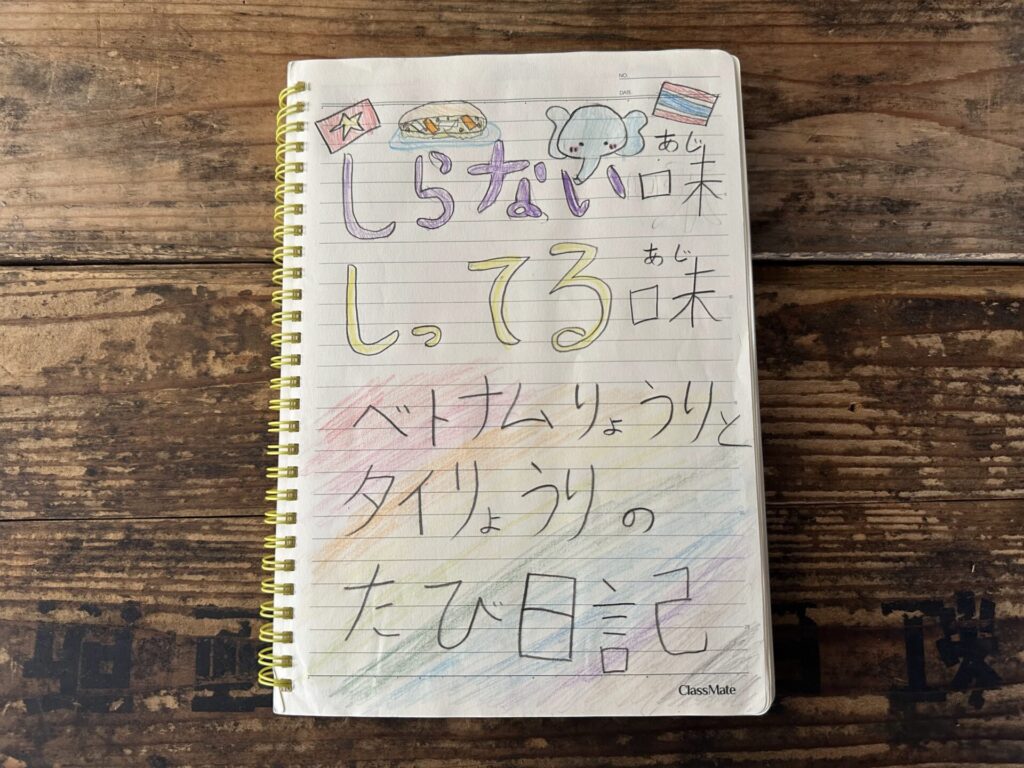 NO.
DATE.
あじ
しらない味
あじ
しってる味
ベトナムりょうりと
タイりょうりの
たび日記
ClassMate